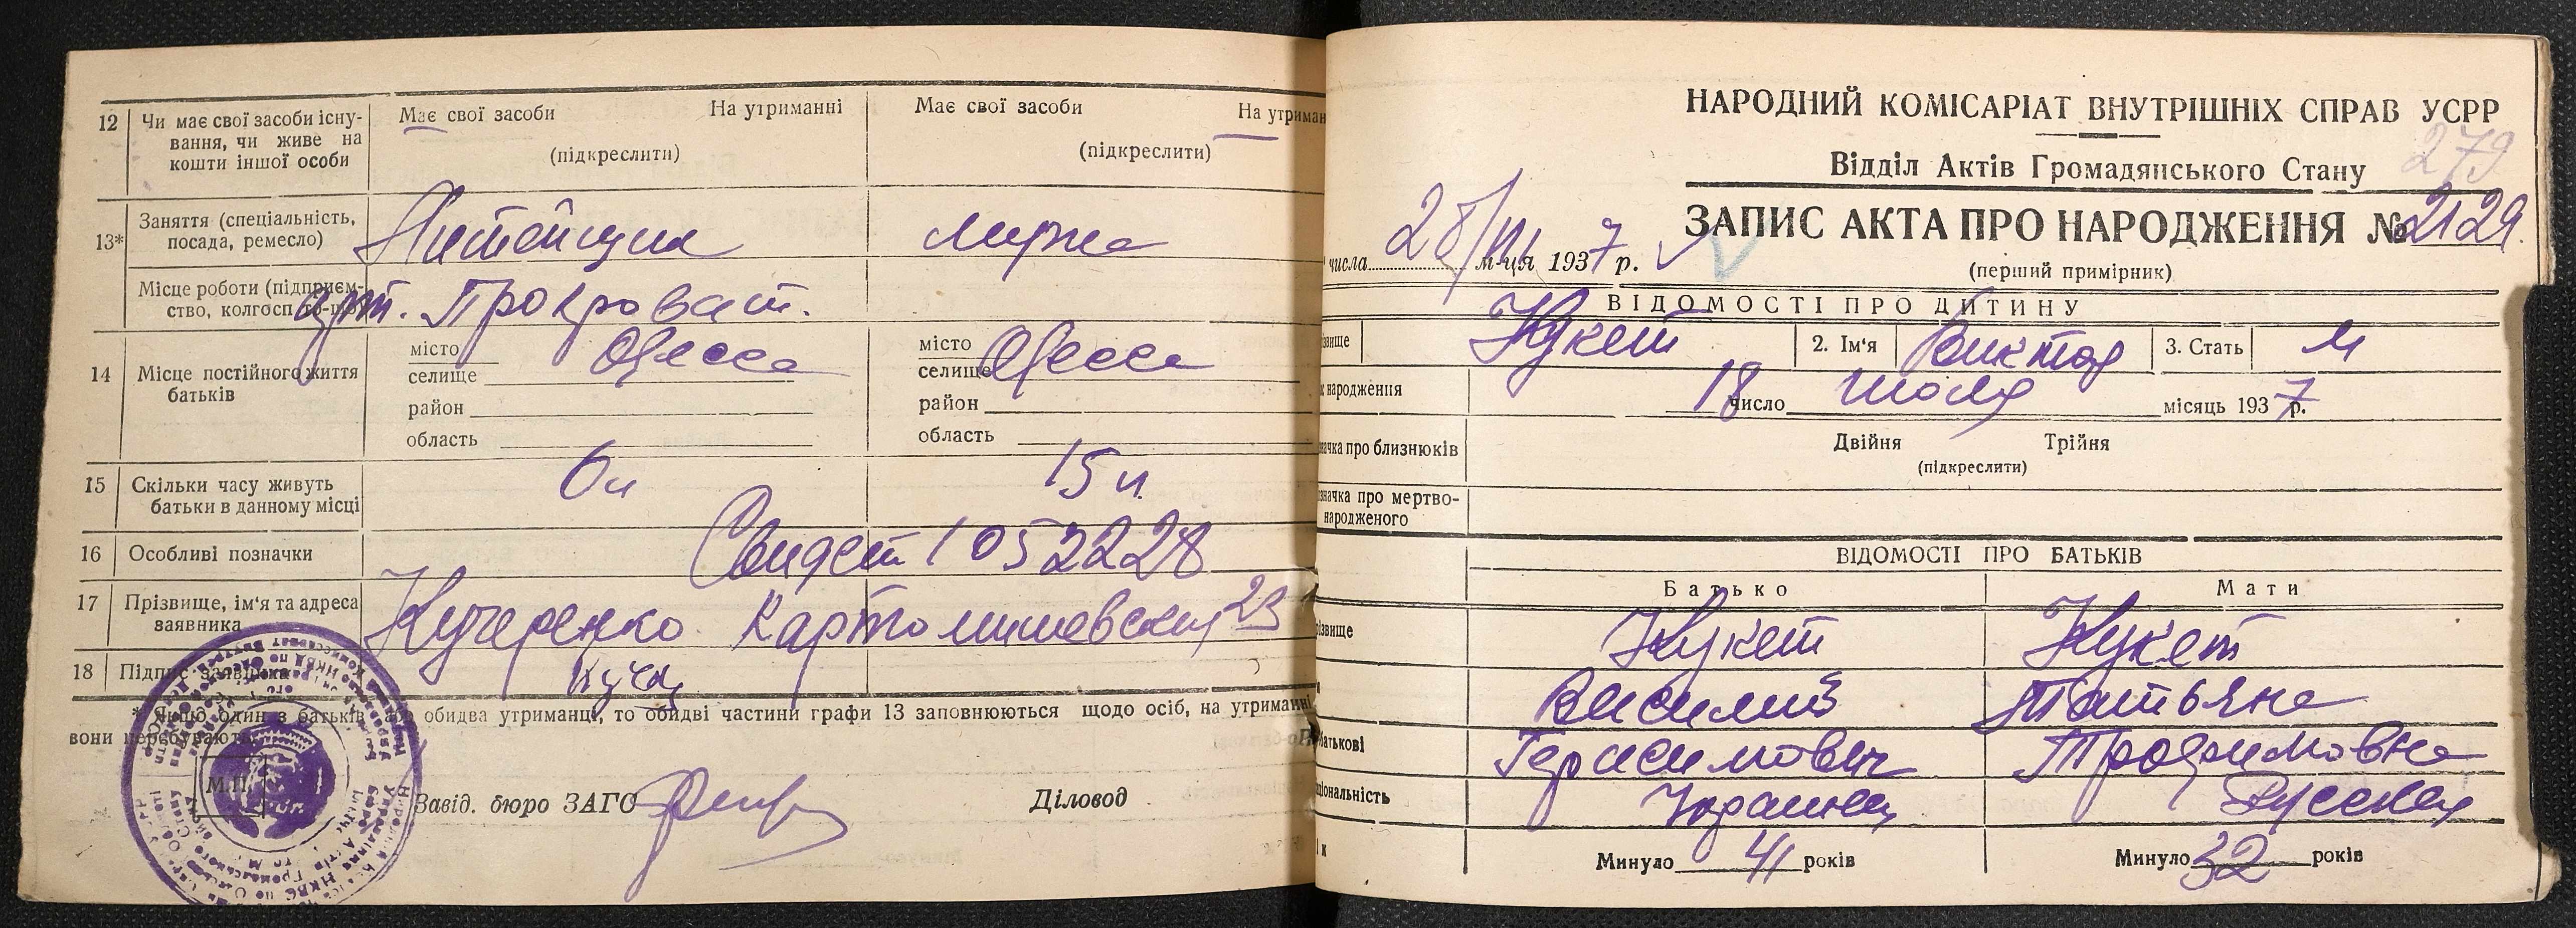 12 Чи має свої засоби існу-
вання, чи живе на
кошти іншої особи
Має свої засоби На утриманні
(підкреслити)
Має свої засоби На утриман
(підкреслити)
13* Заняття (спеціальність,
посада, ремесло)
Місце роботи (підприєм-
ство, колгосп то-що)
арт.
14 Місце постійного життя
батьків
місто Одесса
селище
район
область
місто Одесса
селище
район
область
15 Скільки часу живуть
батьки в данному місці
15 л.
16 Особливі позначки
Свидет 1052228
17 Прізвище, ім'я та адреса
заявника
Кучеренко Картомишевская 23
18 Підпис заявника
Куч
* Якщо один з батьків або обидва утриманці, то обидві частини графи 13 заповнюються щодо осіб, на утриманні
вони перебувають.
М.П.
Завід. бюро ЗАГС
Діловод
НАРОДНИЙ КОМІСАРІАТ ВНУТРІШНІХ СПРАВ УСРР
279
Відділ Актів Громадянського Стану
ЗАПИС АКТА ПРО НАРОДЖЕННЯ № 2129.
числа 28/VII м-ця 1937 р.
(перший примірник)
ВІДОМОСТІ ПРО ДИТИНУ
звище Кукет 2. Ім'я Виктор 3. Стать м
народження 18 число июля місяць 1937 р.
начка про близнюків
Двійня Трійня
(підкреслити)
значка про мертво-
народженого
ВІДОМОСТІ ПРО БАТЬКІВ
Батько Мати
різвище Кукет Кукет
Василий Татьяна
батькові Герасимович Трофимовна
ціональність Украинец Русская
Минуло 41 років Минуло 32 років